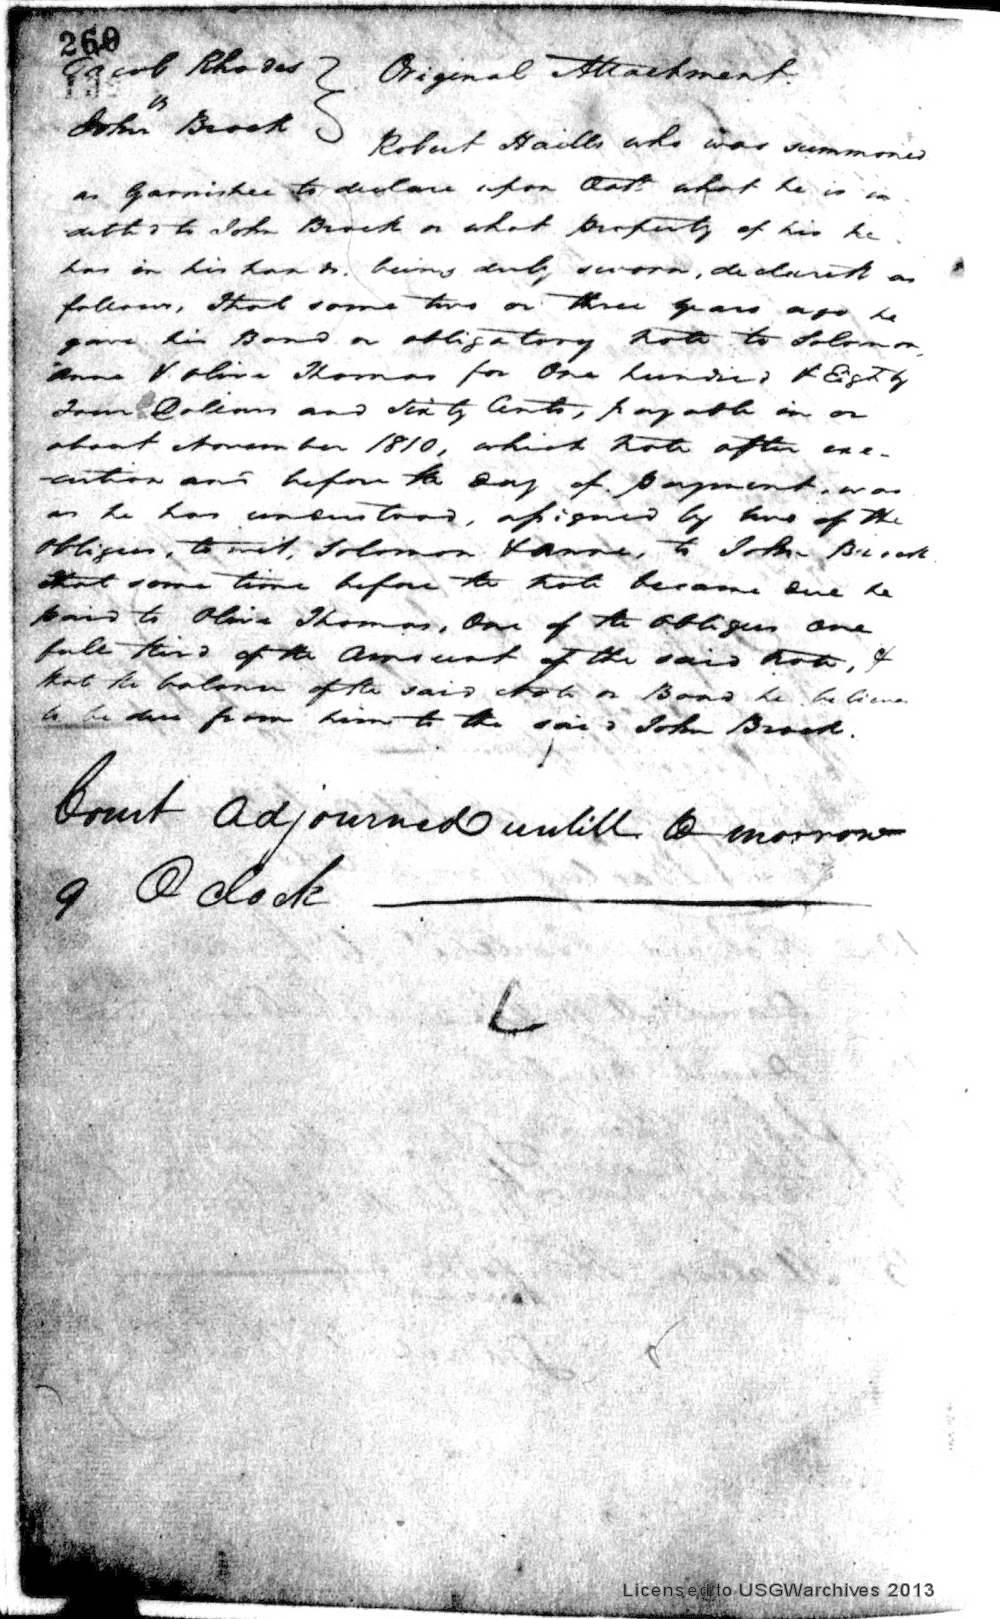 260
Jacob Rhodes } Original Attachment
vs
John Brock
Robert Haills who was summoned
as Garnishee to declare upon Oath what he is in
debted to John Brock or what property of his he
has in his hands. being duly sworn, declareth as
follows, That some two or three years ago he
gave his Bond or obligatory note to Solomon,
Anne & Olive Thomas for One hundred & Eighty
Four Dollars and Sixty Cents, payable in or
about November 1810, which note after exe-
cution and before the day of payment, was
as he has understood, assigned by two of the
Obligees, to wit, Solomon & Anne, to John Brock
that some time before the note became due he
paid to Olive Thomas, One of the Obligees one
full third of the Amount of the said note, &
that the balance of the said note or Bond he believes
to be due from him to the said John Brock.
Court Adjourned untill to morrow
9 O clock
Licensed to USGWarchives 2013